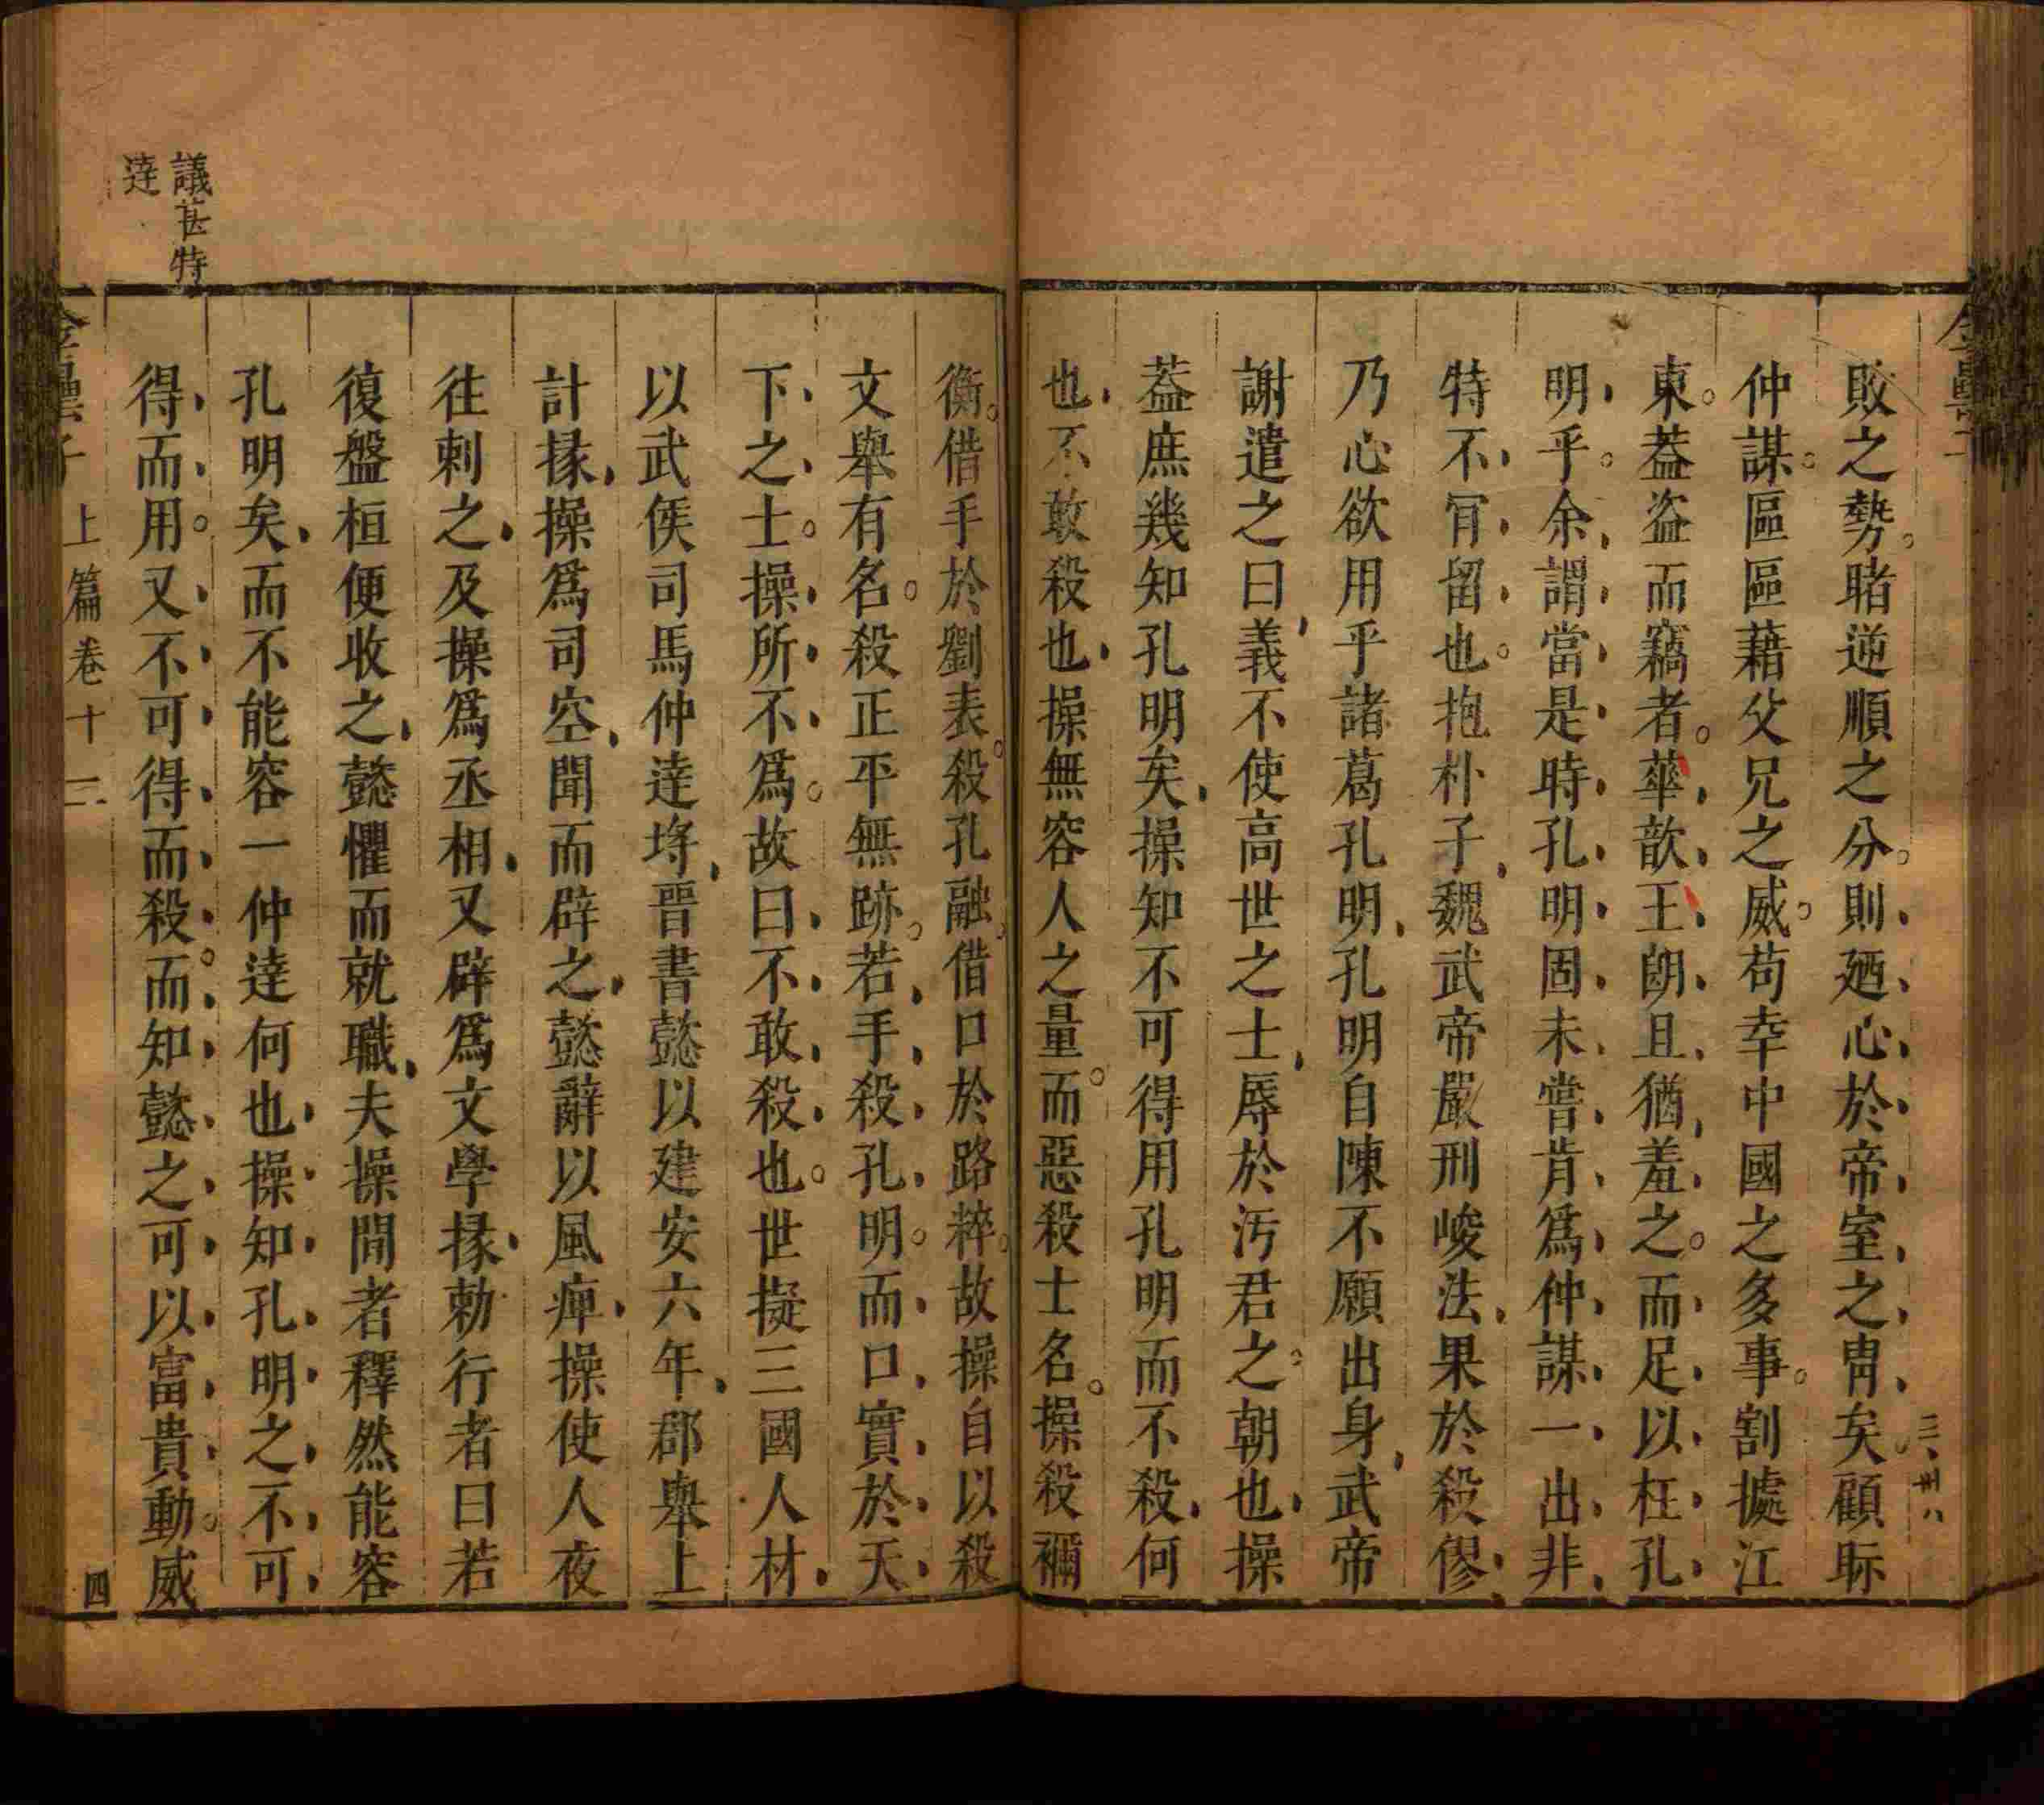 敗之勢。睹逆順之分。則廼心於帝室之胄矣顧眎
仲謀。區區藉父兄之威。苟幸中國之多事。割據江
東。葢盜而竊者。華歆王朗且猶羞之。而足以枉孔
明乎。余謂當是時孔明固未嘗肯爲仲謀一出非
特不肎留也。抱朴子魏武帝嚴刑峻法果於殺僇
乃心欲用乎諸葛孔明孔明自陳不願出身武帝
謝遣之曰義不使高世之士辱於汚君之朝也操
葢庶幾知孔明矣操知不可得用孔明而不殺何
也不敢殺也操無容人之量。而惡殺士名。操殺禰
衡。借手於劉表。殺孔融。借口於路粹。故操自以殺
文舉有名。殺正平無跡。若手殺孔明。而口實於天
下之士。操所不爲。故曰不敢殺也。世擬三國人材
以武侯司馬仲達埓晉書懿以建安六年郡舉上
計掾操爲司空聞而辟之懿辭以風痺操使人夜
往刺之及操爲丞相又辟爲文學掾勅行者曰若
復盤桓便收之懿懼而就職夫操間者釋然能容
孔明矣而不能容一仲達何也操知孔明之不可
得而用。又不可得而殺。而知懿之可以富貴動。威
議甚特
達
上篇卷十二
四